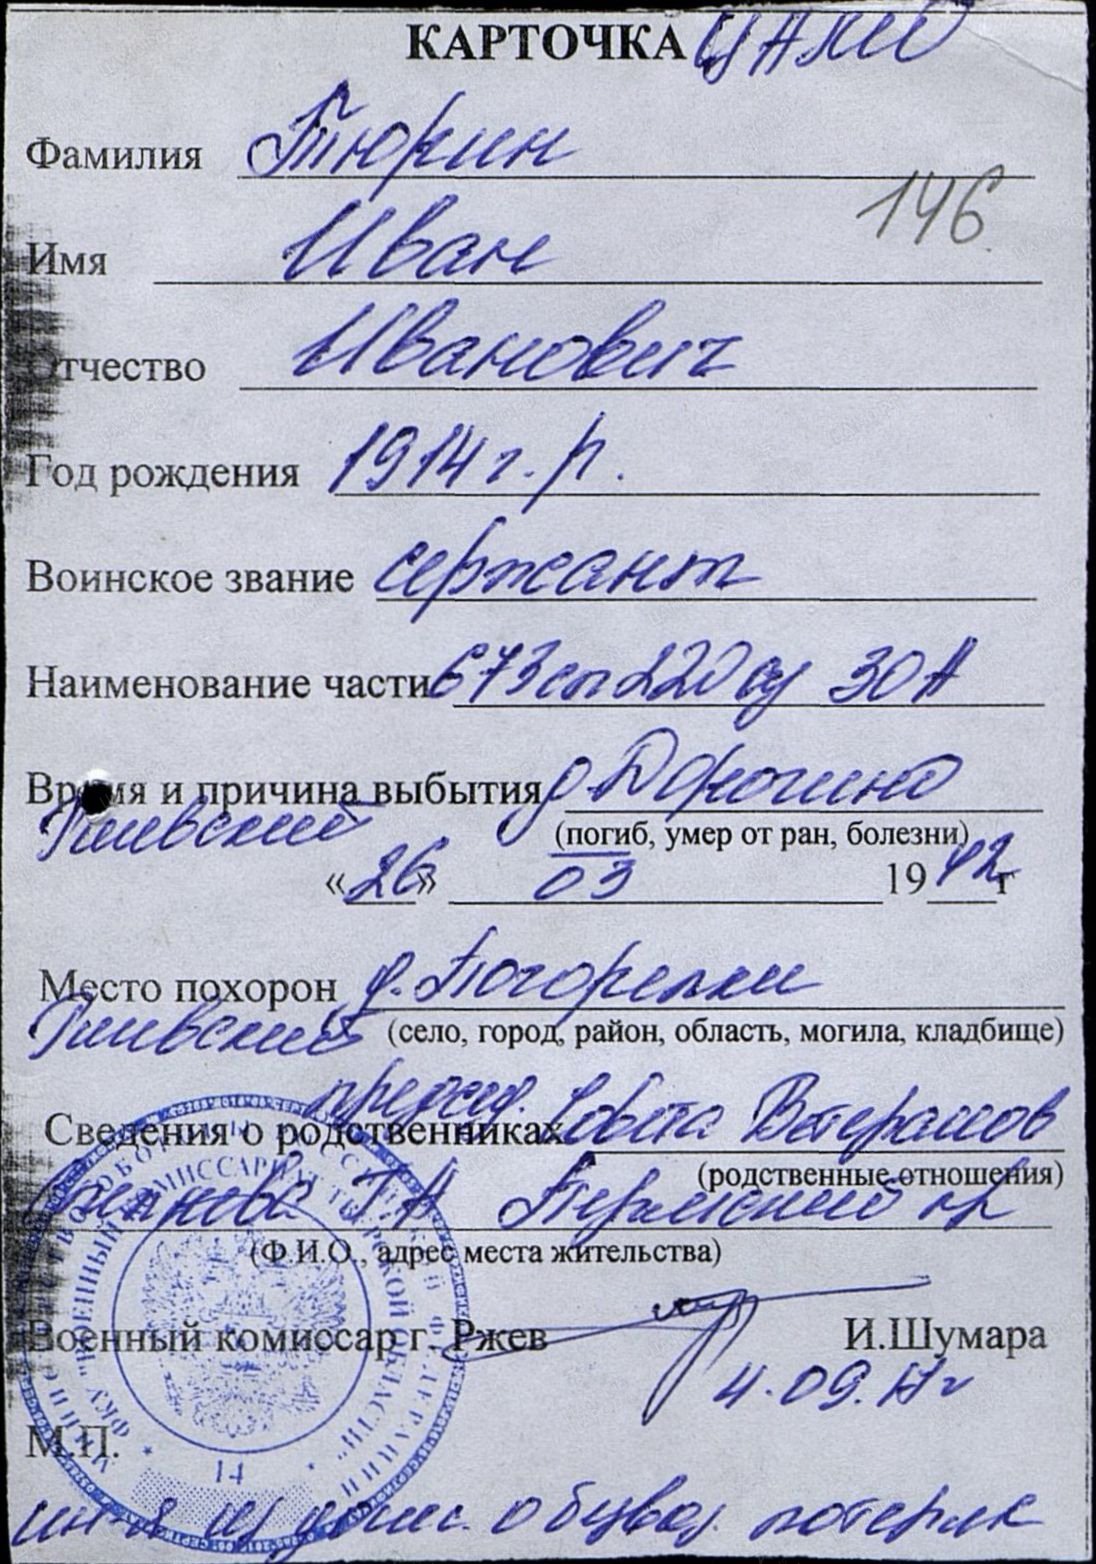 КАРТОЧКА ЦАМО
Фамилия Тюрин
146
Имя Иван
Отчество Иванович
Год рождения 1914 г.р.
Воинское звание сержант
Наименование части 673 сп 220 сд 30 А
Время и причина выбытия д. Дрогино
Ржевский (погиб, умер от ран, болезни)
«26» 03 1942 г
Место похорон д. Погорелки
Ржевский (село, город, район, область, могила, кладбище)
председ. Совета Ветеранов
Сведения о родственниках
(родственные отношения)
Г А Пермский кр
(Ф.И.О., адрес места жительства)
Военный комиссар г. Ржев И.Шумара
4.09.17г
М.П.
14
ФКУ "ВОЕННЫЙ КОМИССАРИАТ ТВЕРСКОЙ ОБЛАСТИ"
ин-я из донес. о безвоз. потерях